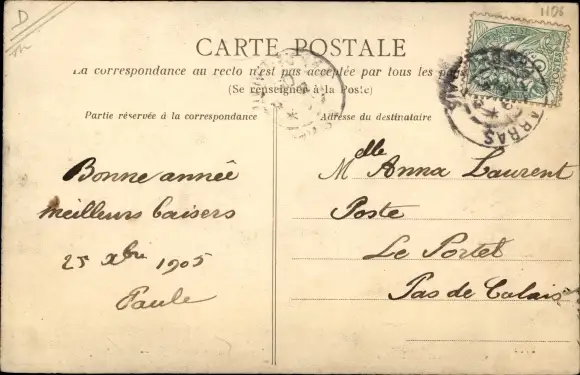 1106
D
CARTE POSTALE
La correspondance au recto n'est pas acceptée par tous les pays
(Se renseigner à la Poste)
Partie réservée à la correspondance
Adresse du destinataire
Bonne année
meilleurs baisers
25 Xbre 1905
Paule
Mlle Anna Laurent
Poste
Le Portel
Pas de Calais
ARRAS
POSTES